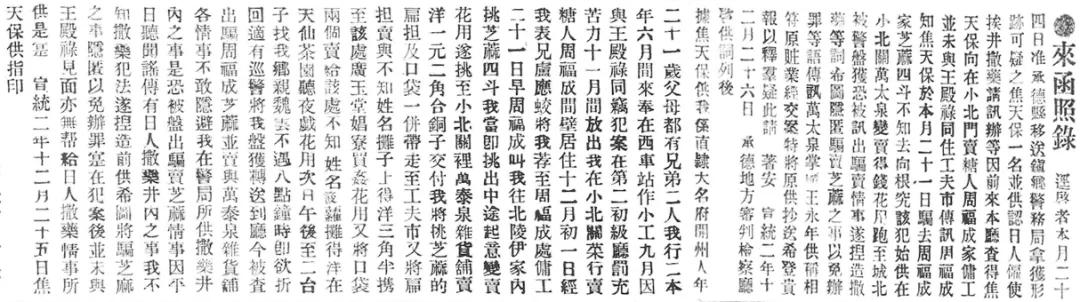 ◉來函照錄 逕啟者本月二十
四日准承德縣移送鎮鄉警務局拿獲形
跡可疑之焦天保一名並供認日人僱使
挨井撒藥請訊辦等因前來本廳查得焦
天保向在小北門賣糖人周福成家傭工
並未與王殿祿同住工夫市傳訊周福成
知焦天保於本月二十一日騙去周福成
家芝蔴四斗不知去向根究該犯始供在
小北關萬太泉變賣得錢花尽跑至城北
被警盤獲恐被訊出騙賣情事遂捏造撒
藥等詞希圖隱匿騙賣芝蔴之事以免辦
罪等語傳訊萬太泉掌櫃王永年供稱相
符原贓業經交案特將原供抄送希登貴
報以釋羣疑此請 著安 宣統二年十
二月二十六日 承德地方審判檢察廳
供詞列後
據焦天保供我係直隸大名府開州人年
二十一歲父母都有兄弟二人我行二本
年六月間來奉在西車站作小工九月因
與王殿祿同竊犯案在第二初級廳罰充
苦力十一月間放出我在小北關菜行賣
糖人周福成間壁居住十二月初一日經
我表兄盧應蛟將我荐至周福成處傭工
二十一日早周福成叫我往北陵伊家內
挑芝蔴四斗我當即挑出中途起意變賣
花用遂挑至小北關裡萬泰泉雜貨舖賣
洋一元二角合銅子交付我將挑芝蔴的
扁担及口袋一併帶走至工夫市又將扁
担賣與不知姓名攤子上得洋三角半携
至該處廣玉堂娼寮買姦花用又將口袋
兩個賣給該處不知姓名該雜攤得洋在
天仙茶園聽夜戲花用次日午後至二台
子找我鄉親魏雲不遇八點鐘時即欲折
回適有巡警將我盤獲轉送到廳今被查
出騙周福成芝蔴並賣與萬泰泉雜貨舖
各情事不敢隱避我在警局所供撒藥井
內之事是恐被盤出騙賣芝蔴情事因平
日聽聞謠傳有日人撒藥井內之事我不
知撒藥犯法遂捏造前供希圖將騙芝蔴
之事隱匿以免辦罪實在犯案後並未與
王殿祿見面亦無幫給日人撒藥情事所
供是寔 宣統二年十二月二十五日焦
天保供指印